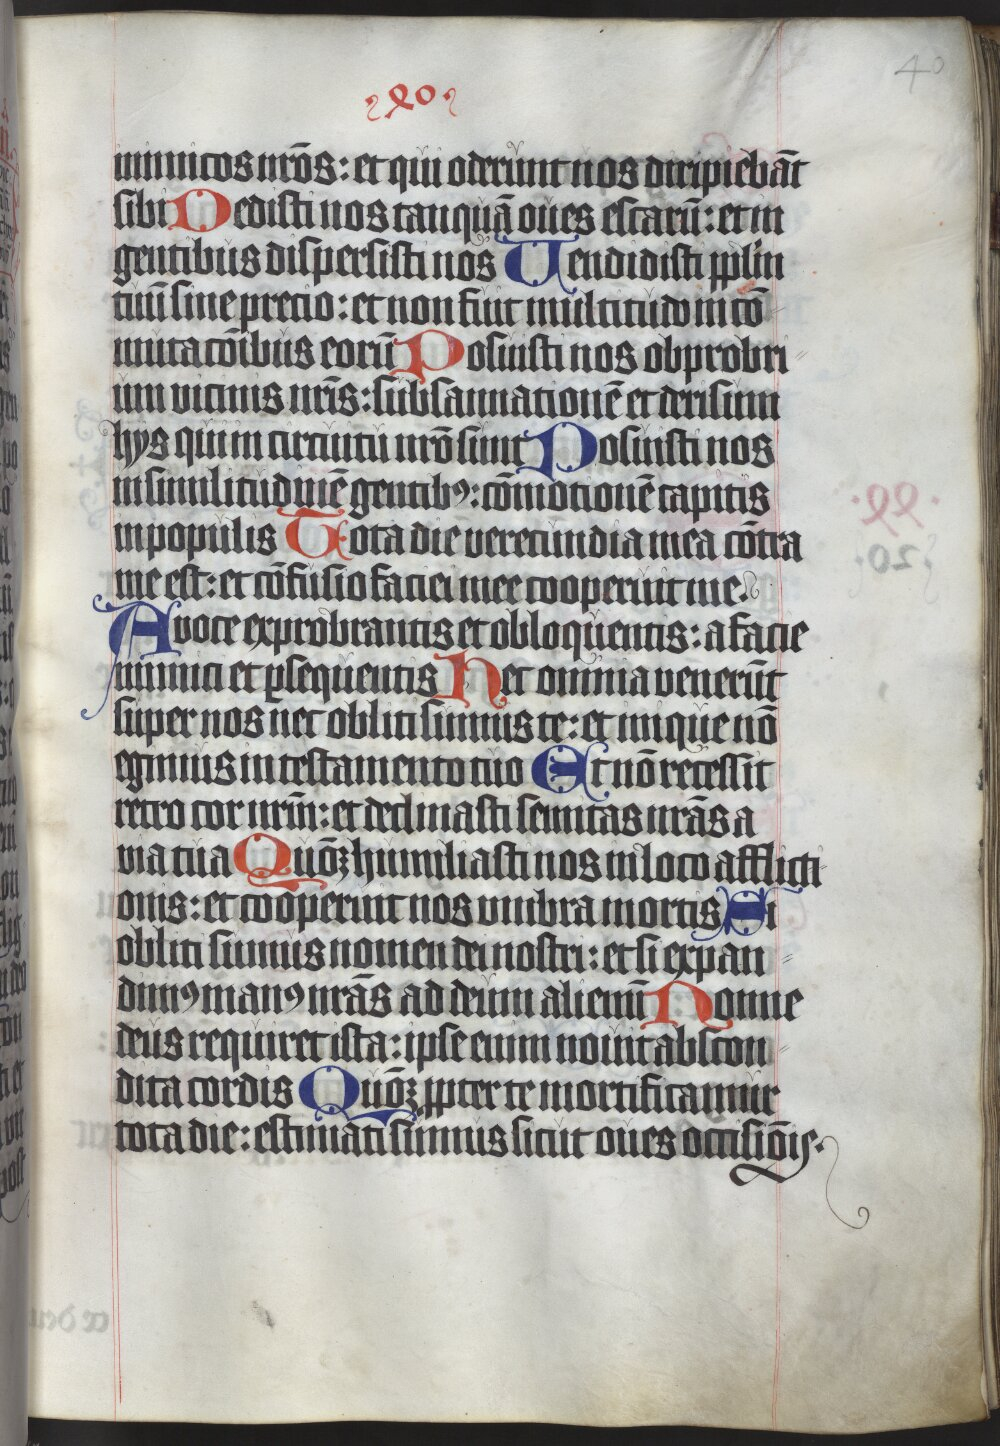 40
·xo·
inimicos nr̄os: et qui oderunt nos diripiebāt
sibi Dedisti nos tanquā oues escarū: et in
gentibus dispersisti nos Uendidisti pplm̄
tuū sine precio: et non fuit multitudo in cō
mutacōibus eorū Posuisti nos obprobri
um vicinis nr̄is: subsannationē et derisum
hys qui in circuitu nr̄o sunt Posuisti nos
in similitudinē gentibꝰ: cōmotionē capitis
in populis Tota die verecundia mea cōtra
me est: et cōfusio faciei mee cooperuit me.
A voce exprobrantis et obloquentis: a facie
inimici et ꝑsequentis Hec omnia venerūt
super nos nec obliti sumus te: et inique nō
egimus in testamento tuo Et nō recessit
retro cor nrm̄: et declinasti semitas nrās a
via tua Quōꝫ humiliasti nos in loco afflicti
onis: et cooperuit nos vmbra mortis Si
obliti sumus nomen dei nostri: et si expan
dimꝰ manꝰ nrās ad deum alienū Nonne
deus requiret ista: ipse enim nouit abscon
dita cordis Quōꝫ ꝓpter te mortificamur
tota die: estimati sumus sicut oues occisiōis.